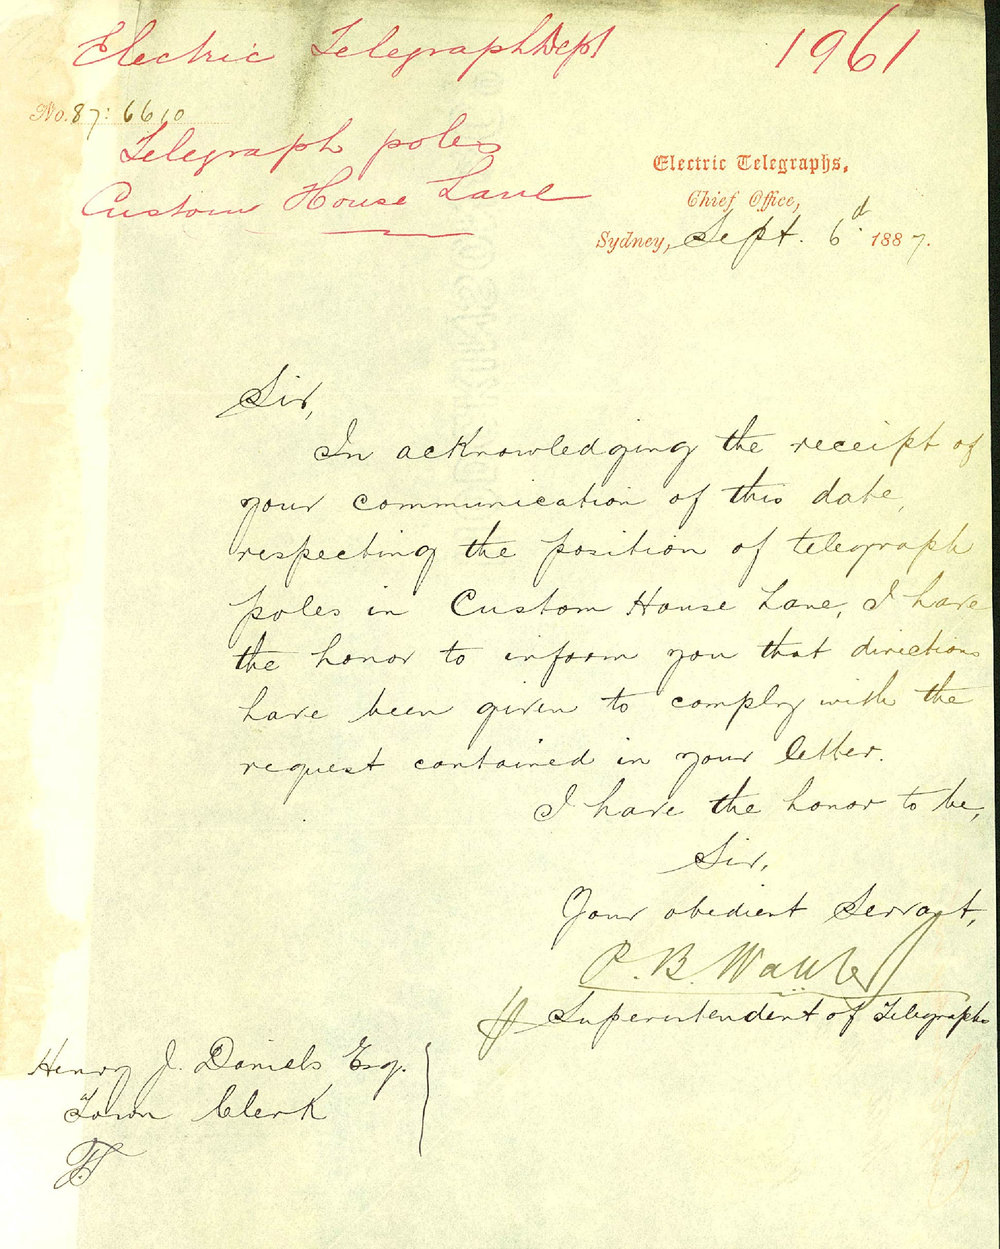 Electric Telegraph Dept
1961
No. 87: 6610
Telegraph poles
Custom House Lane
Electric Telegraphs,
Chief Office,
Sydney, Sept. 6d. 1887.
Sir,
In acknowledging the receipt of
your communication of this date,
respecting the position of telegraph
poles in Custom House Lane, I have
the honor to inform you that directions
have been given to comply with the
request contained in your letter.
I have the honor to be,
Sir,
Your obedient Servant,
P. B. Walker
Superintendent of Telegraphs
Henry J. Daniels Esq.
Town Clerk